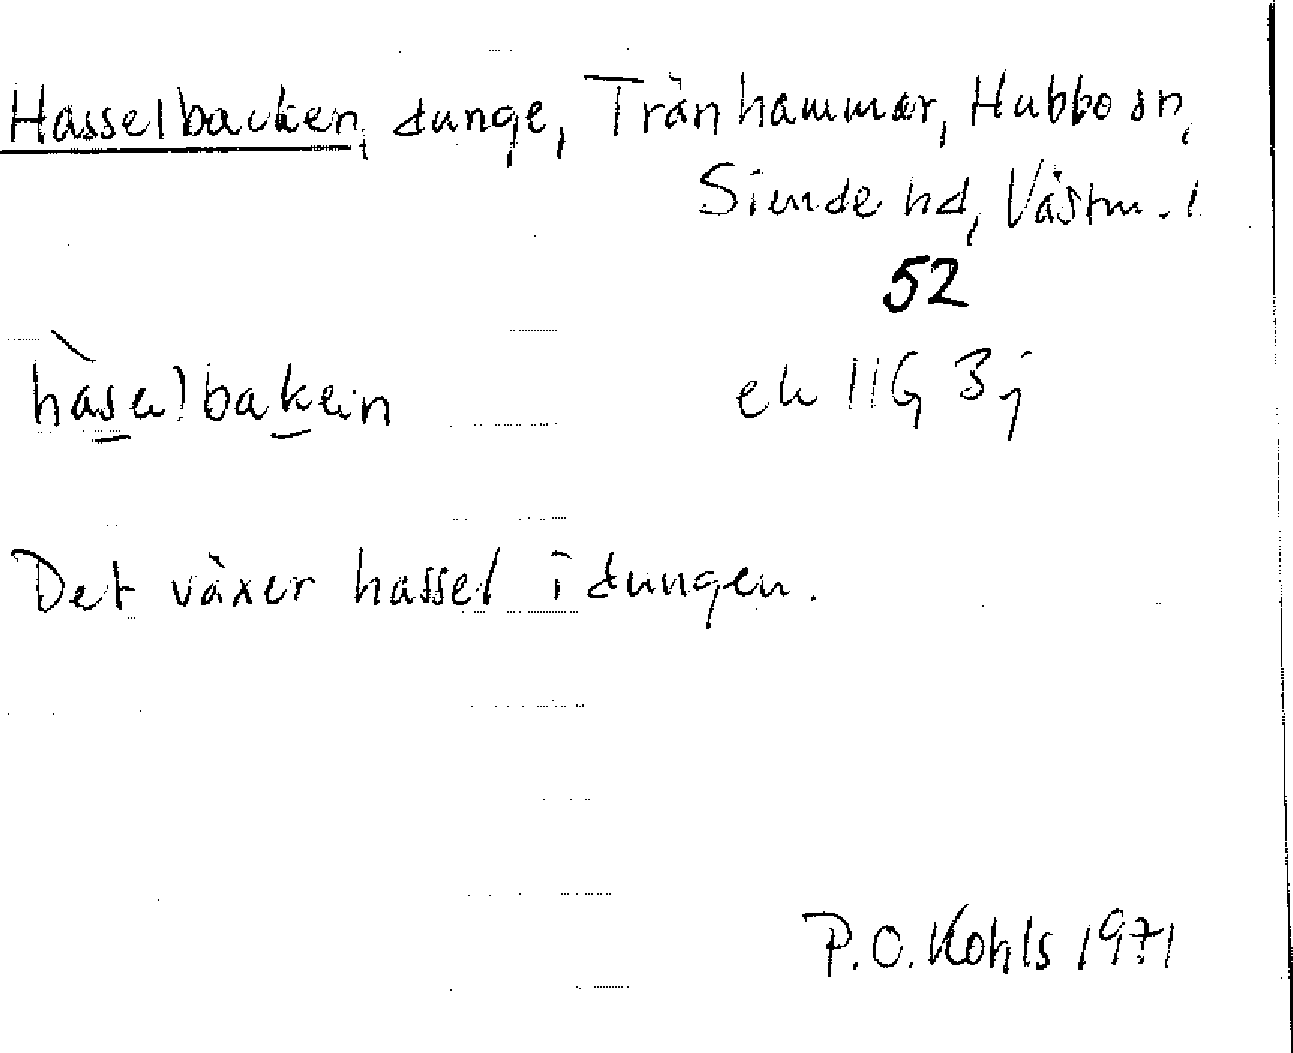 Hasselbacken, dunge, Tränhammar, Hubbo sn,
Siende hd, Västm. l
52
hàselbaken
ek 11G 3j
Det växer hassel i dungen.
P.O. Kohls 1971